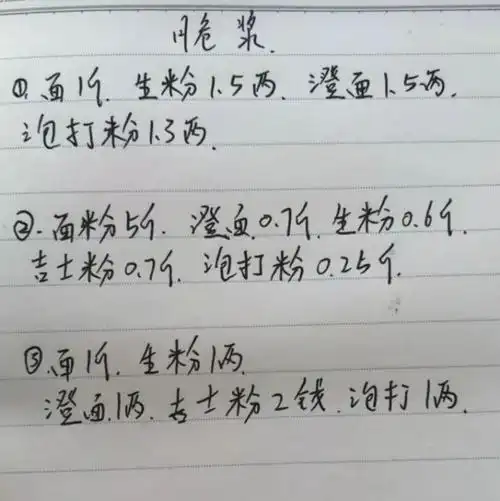 脆浆.
①.面1斤.生粉1.5两.澄面1.5两.
泡打粉1.3两.
②.面粉5斤.澄面0.7斤.生粉0.6斤.
吉士粉0.7斤.泡打粉0.25斤.
③.面1斤.生粉1两.
澄面1两.吉士粉2钱.泡打1两.